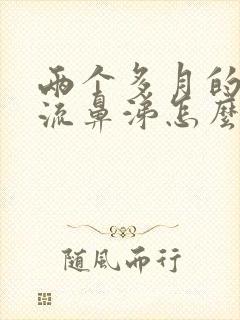 两个多月的
流鼻涕怎麼
随風而行